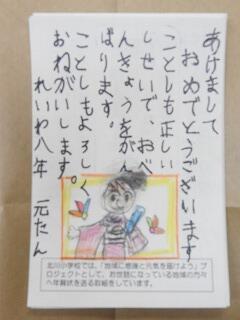 あけまして
おめでとうございます
ことしも正しい
しせいで、おべ
んきょうをがん
ばります。
ことしもよろしく
おねがいします。
れいわ八年　元たん
北川小学校では、「地域に感謝と元気を届けよう」プ
ロジェクトとして、お世話になっている地域の方々
へ年賀状を送る取組をしています。